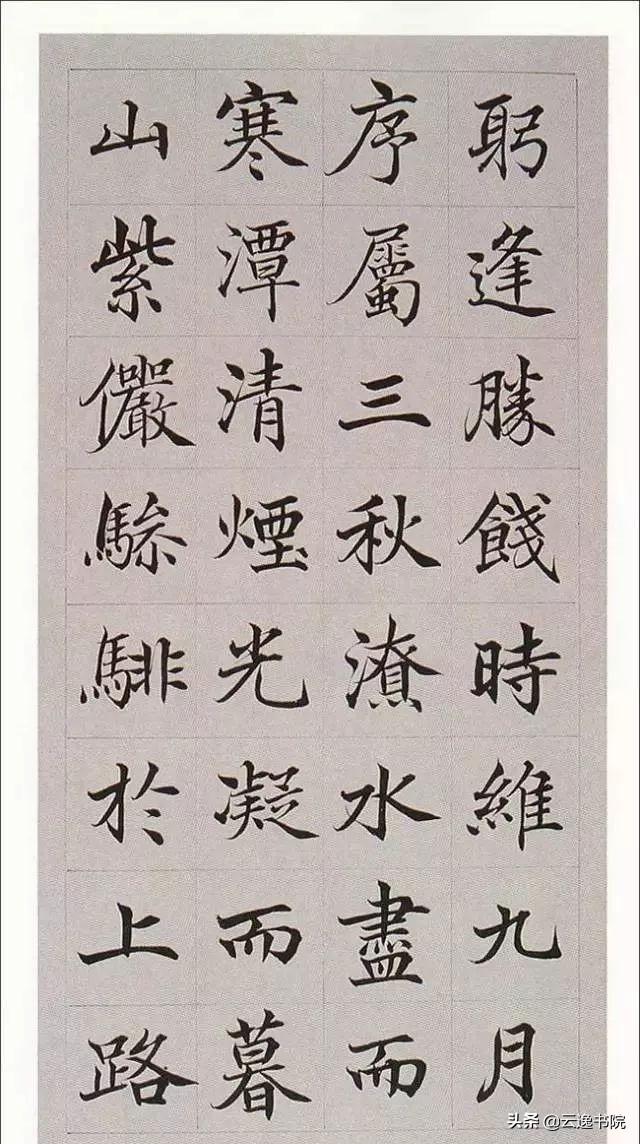 躬逢勝餞時維九月
序屬三秋潦水盡而
寒潭清煙光凝而暮
山紫儼驂騑於上路
头条 @云逸书院